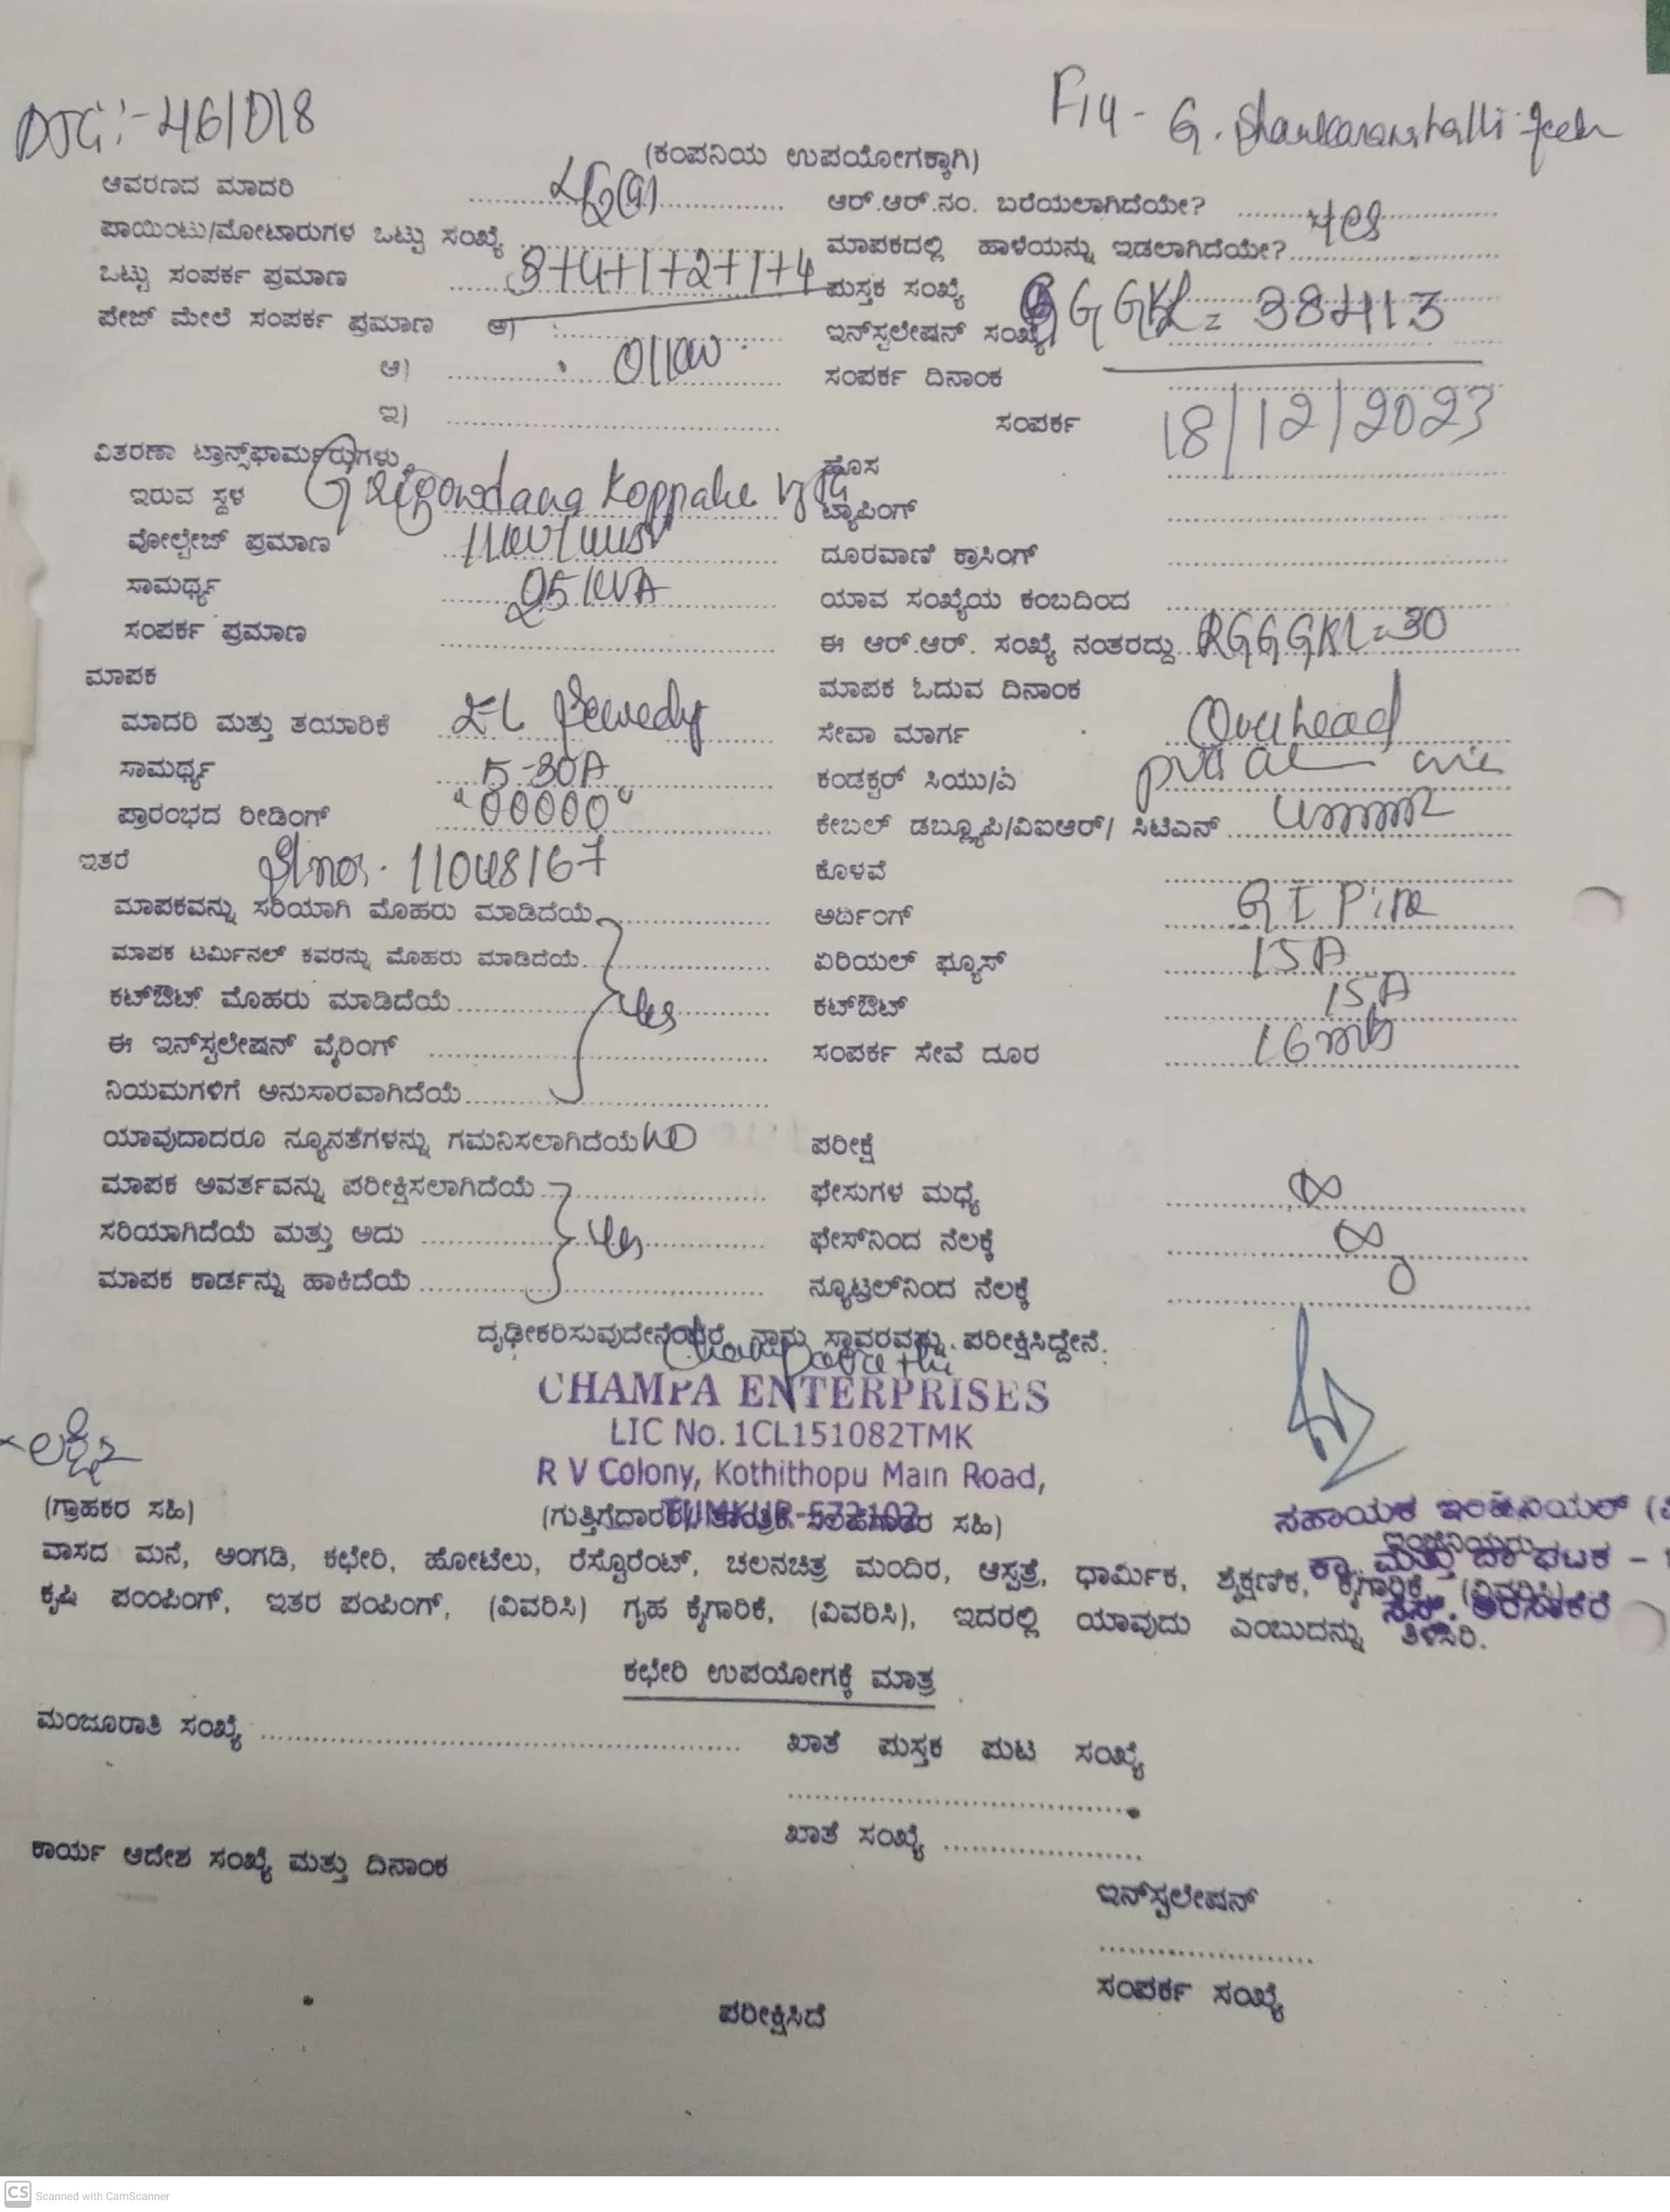 DTC:-461D18
F14 - G. Shankaranahalli feeder
(ಕಂಪನಿಯ ಉಪಯೋಗಕ್ಕಾಗಿ)
ಆವರಣದ ಮಾದರಿ
ಆರ್.ಆರ್.ನಂ. ಬರೆಯಲಾಗಿದೆಯೇ? yes
ಪಾಯಿಂಟು/ಮೋಟಾರುಗಳ ಒಟ್ಟು ಸಂಖ್ಯೆ
ಮಾಪಕದಲ್ಲಿ ಹಾಳೆಯನ್ನು ಇಡಲಾಗಿದೆಯೇ?
ಒಟ್ಟು ಸಂಪರ್ಕ ಪ್ರಮಾಣ 3+4+1+2+1+4
ಪುಸ್ತಕ ಸಂಖ್ಯೆ
ಪೇಜ್ ಮೇಲೆ ಸಂಪರ್ಕ ಪ್ರಮಾಣ ಅ)
ಇನ್‌ಸ್ಟಲೇಷನ್ ಸಂಖ್ಯೆ GGKL = 38413
ಆ) 01kw
ಸಂಪರ್ಕ ದಿನಾಂಕ
ಇ)
ಸಂಪರ್ಕ 18/12/2023
ವಿತರಣಾ ಟ್ರಾನ್ಸ್‌ಫಾರ್ಮರುಗಳು
ಹೊಸ
ಇರುವ ಸ್ಥಳ
ಟ್ಯಾಪಿಂಗ್
ವೋಲ್ಟೇಜ್ ಪ್ರಮಾಣ
ದೂರವಾಣಿ ಕ್ರಾಸಿಂಗ್
ಸಾಮರ್ಥ್ಯ 25 KVA
ಯಾವ ಸಂಖ್ಯೆಯ ಕಂಬದಿಂದ
ಸಂಪರ್ಕ ಪ್ರಮಾಣ
ಈ ಆರ್.ಆರ್. ಸಂಖ್ಯೆ ನಂತರದ್ದು RGGGKL=30
ಮಾಪಕ
ಮಾಪಕ ಓದುವ ದಿನಾಂಕ
ಮಾದರಿ ಮತ್ತು ತಯಾರಿಕೆ
ಸೇವಾ ಮಾರ್ಗ Overhead
ಸಾಮರ್ಥ್ಯ 5-30A
ಕಂಡಕ್ಟರ್ ಸಿಯು/ಎ
ಪ್ರಾರಂಭದ ರೀಡಿಂಗ್ "00000"
ಕೇಬಲ್ ಡಬ್ಲ್ಯೂಪಿ/ವಿಐಆರ್/ ಸಿಟಿಎನ್
ಇತರೆ Slno:- 11048167
ಕೊಳವೆ
ಮಾಪಕವನ್ನು ಸರಿಯಾಗಿ ಮೊಹರು ಮಾಡಿದೆಯೆ
ಅರ್ದಿಂಗ್ GI Pipe
ಮಾಪಕ ಟರ್ಮಿನಲ್ ಕವರನ್ನು ಮೊಹರು ಮಾಡಿದೆಯೆ
ಏರಿಯಲ್ ಫ್ಯೂಸ್ 15A
ಕಟ್‌ಔಟ್ ಮೊಹರು ಮಾಡಿದೆಯೆ yes
ಕಟ್‌ಔಟ್ 15A
ಈ ಇನ್‌ಸ್ಟಲೇಷನ್ ವೈರಿಂಗ್
ಸಂಪರ್ಕ ಸೇವೆ ದೂರ
ನಿಯಮಗಳಿಗೆ ಅನುಸಾರವಾಗಿದೆಯೆ
ಯಾವುದಾದರೂ ನ್ಯೂನತೆಗಳನ್ನು ಗಮನಿಸಲಾಗಿದೆಯೆ NO
ಪರೀಕ್ಷೆ
ಮಾಪಕ ಅವರ್ತವನ್ನು ಪರೀಕ್ಷಿಸಲಾಗಿದೆಯೆ
ಫೇಸುಗಳ ಮಧ್ಯೆ ∞
ಸರಿಯಾಗಿದೆಯೆ ಮತ್ತು ಅದು yes
ಫೇಸ್‌ನಿಂದ ನೆಲಕ್ಕೆ ∞
ಮಾಪಕ ಕಾರ್ಡನ್ನು ಹಾಕಿದೆಯೆ
ನ್ಯೂಟ್ರಲ್‌ನಿಂದ ನೆಲಕ್ಕೆ 0
ದೃಢೀಕರಿಸುವುದೇನೆಂದರೆ, ನಾನು ಸ್ಥಾವರವನ್ನು ಪರೀಕ್ಷಿಸಿದ್ದೇನೆ.
CHAMPA ENTERPRISES
LIC No. 1CL151082TMK
R V Colony, Kothithopu Main Road,
TUMKUR-572102
(ಗ್ರಾಹಕರ ಸಹಿ)
ಸಹಾಯಕ ಇಂಜಿನಿಯರ್
ಕಾ ಮತ್ತು ಪಾ ಘಟಕ -
ವಾಸದ ಮನೆ, ಅಂಗಡಿ, ಕಛೇರಿ, ಹೋಟೆಲು, ರೆಸ್ಟೊರೆಂಟ್, ಚಲನಚಿತ್ರ ಮಂದಿರ, ಆಸ್ಪತ್ರೆ, ಧಾರ್ಮಿಕ, ಶೈಕ್ಷಣಿಕ, ಕೈಗಾರಿಕೆ, (ವಿವರಿಸಿ)
ಕೃಷಿ ಪಂಂಪಿಂಗ್, ಇತರ ಪಂಪಿಂಗ್, (ವಿವರಿಸಿ) ಗೃಹ ಕೈಗಾರಿಕೆ, (ವಿವರಿಸಿ), ಇದರಲ್ಲಿ ಯಾವುದು ಎಂಬುದನ್ನು ತಿಳಿಸಿರಿ.
ಕಛೇರಿ ಉಪಯೋಗಕ್ಕೆ ಮಾತ್ರ
ಮಂಜೂರಾತಿ ಸಂಖ್ಯೆ
ಖಾತೆ ಪುಸ್ತಕ ಪುಟ ಸಂಖ್ಯೆ
ಖಾತೆ ಸಂಖ್ಯೆ
ಕಾರ್ಯ ಆದೇಶ ಸಂಖ್ಯೆ ಮತ್ತು ದಿನಾಂಕ
ಇನ್‌ಸ್ಟಲೇಷನ್
ಸಂಪರ್ಕ ಸಂಖ್ಯೆ
ಪರೀಕ್ಷಿಸಿದೆ
CS Scanned with CamScanner